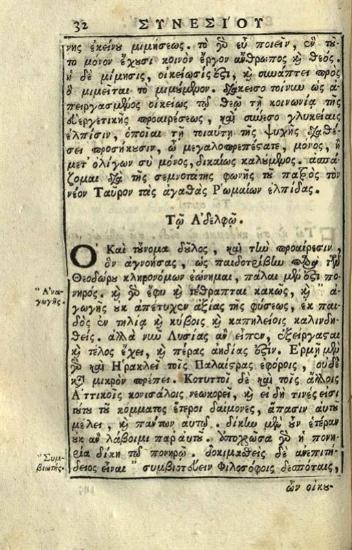 32 ΣΥΝΕΣΙΟΥ
νης ἐκείνου μιμήσεως. τὸ γὰρ εὖ ποιεῖν, ἓν τῦ-
το μόνον ἔχουσι κοινὸν ἔργον ἄνθρωπος καὶ θεός.
ἡ δὲ μίμησις, οἰκείωσίς ἐστι, καὶ συνάπτει πρὸς
ὃ μιμεῖται τὸ μιμούμενον. διάκεισο τοίνυν ὡς ἀ-
πειργασμένος οἰκείως τῷ θεῷ τῇ κοινωνίᾳ τῆς
εὐεργετικῆς προαιρέσεως, καὶ σύνεσο γλυκείαις
ἐλπίσιν, ὁποῖαι τῇ τοιαύτῃ τῆς ψυχῆς διαθέ-
σει προσήκουσιν, ὦ μεγαλοπρεπέστατε, μόνος, ἢ
μετ' ὀλίγων σὺ μόνος, δικαίως καλούμενος. ἀσπά-
ζομαι διὰ τῆς σεμνοτάτης φωνῆς τῦ πατρὸς τὸν
νέον Ταῦρον τὰς ἀγαθὰς Ῥωμαίων ἐλπίδας.
Τῷ Ἀδελφῷ.
Ὁ Καὶ τοὔνομα δοῦλος, καὶ τὴν προαίρεσιν,
ὃν ἀγνοήσας, ὡς παιδοτρίβην παρὰ τῶν
Θεοδώρου κληρονόμων ἐώνημαι, πάλαι μὲν ἐστὶ πο-
νηρός. καὶ γὰρ ἔφυ καὶ τέθραπται κακῶς, καὶ "ἀ-
"Ἀνα-
γωγῆς.
γωγῆς οὐκ ἀπέτυχεν ἀξίας τῆς φύσεως, ἐκ παι-
δὸς ἐν τηλίᾳ καὶ κύβοις καὶ καπηλείοις καλινδη-
θείς. ἀλλὰ νῦν Λυσίας ἂν εἶπεν, ἐξείργασται
καὶ τέλος ἔχει, καὶ πέρας ἀηδίας ἐστίν. Ἑρμῇ μὲν
γὰρ καὶ Ἡρακλεῖ τοῖς Παλαίστρας ἐφόροις, οὐδὲ
καὶ μικρὸν πρέπει. Κοτυττοῖ δὲ καὶ τοῖς ἄλλοις
Ἀττικοῖς κονισάλοις νεωκορεῖ, καὶ εἰ δή τινές εἰσι
τούτου τοῦ κόμματος ἕτεροι δαίμονες, ἅπασιν αὐτοῦ
μέλει, καὶ πάντων αὐτῷ. δίκην μὲν οὖν ἑτέραν
οὐκ ἂν λάβοιμι παρ αὐτοῦ. ἀποχρῶσα γὰρ ἡ πονη-
ρία δίκη τῷ πονηρῷ. δοκιμασθεὶς δὲ ἀνεπιτή-
"Συμ-
βιωτής.
δειος εἶναι "συμβιοτεύειν Φιλοσόφοις δεσπόταις,
ὧν οἰκου-